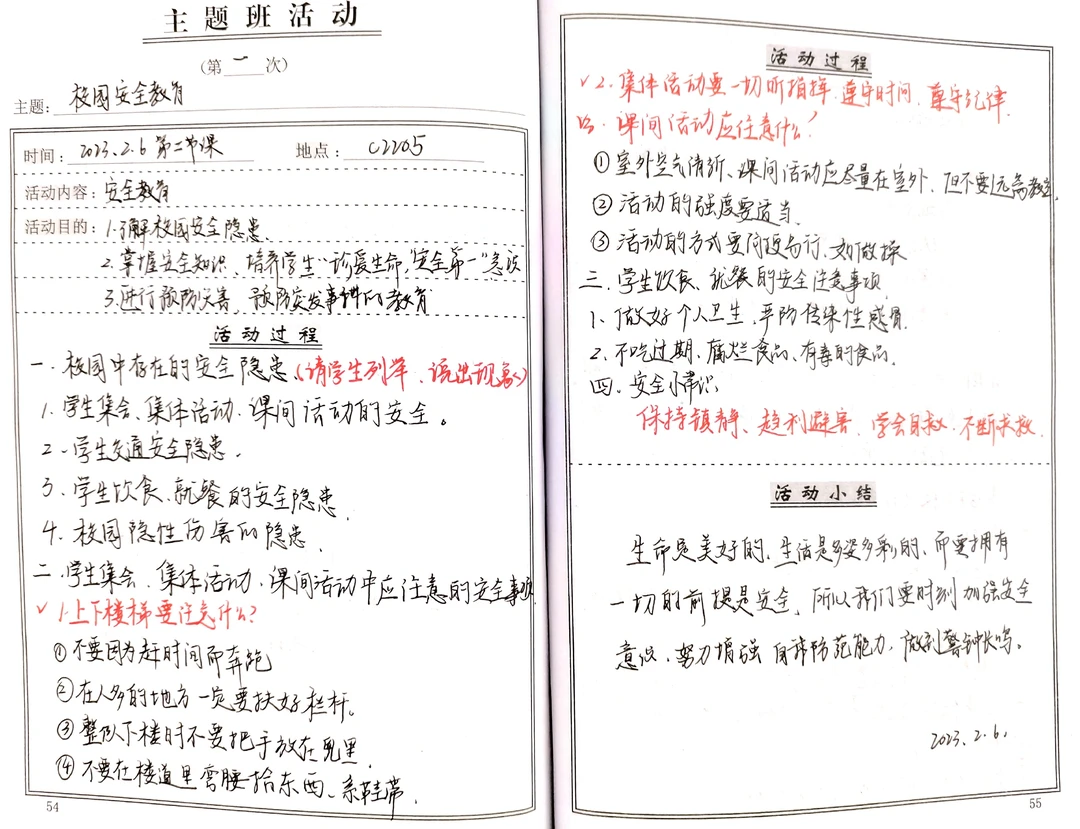 主题班活动
(第一次)
主题: 校园安全教育
时间: 2023.2.6 第二节课 地点: C2205
活动内容: 安全教育
活动目的: 1.了解校园安全隐患.
2.掌握安全知识、培养学生"珍爱生命,安全第一"意识
3.进行预防灾害,预防突发事件的教育
活动过程
一.校园中存在的安全隐患、(请学生列举、说出现象)
1.学生集会、集体活动、课间活动的安全。
2.学生交通安全隐患.
3.学生饮食、就餐的安全隐患.
4.校园隐性伤害的隐患.
二.学生集会、集体活动、课间活动中应注意的安全事项
✓ 1.上下楼梯要注意什么?
①不要因为赶时间而奔跑
②在人多的地方一定要扶好栏杆。
③整队下楼时不要把手放在兜里.
④不要在楼道里弯腰拾东西、系鞋带.
54
活动过程
✓2.集体活动要一切听指挥.遵守时间、遵守纪律.
3.课间活动应注意什么?
①室外空气清新、课间活动应尽量在室外,但不要远离教室.
②活动的强度要适当.
③活动的方式要简便易行.如做操
三.学生饮食、就餐的安全注意事项
1、做好个人卫生,严防传染性感冒.
2.不吃过期、腐烂食品、有毒的食品.
四.安全小常识
保持镇静、趋利避害、学会自救、不断求救.
活动小结
生命是美好的、生活是多姿多彩的、而要拥有
一切的前提是安全、所以我们要时刻加强安全
意识、努力增强自我防范能力,做到警钟长鸣。
2023.2.6.
55